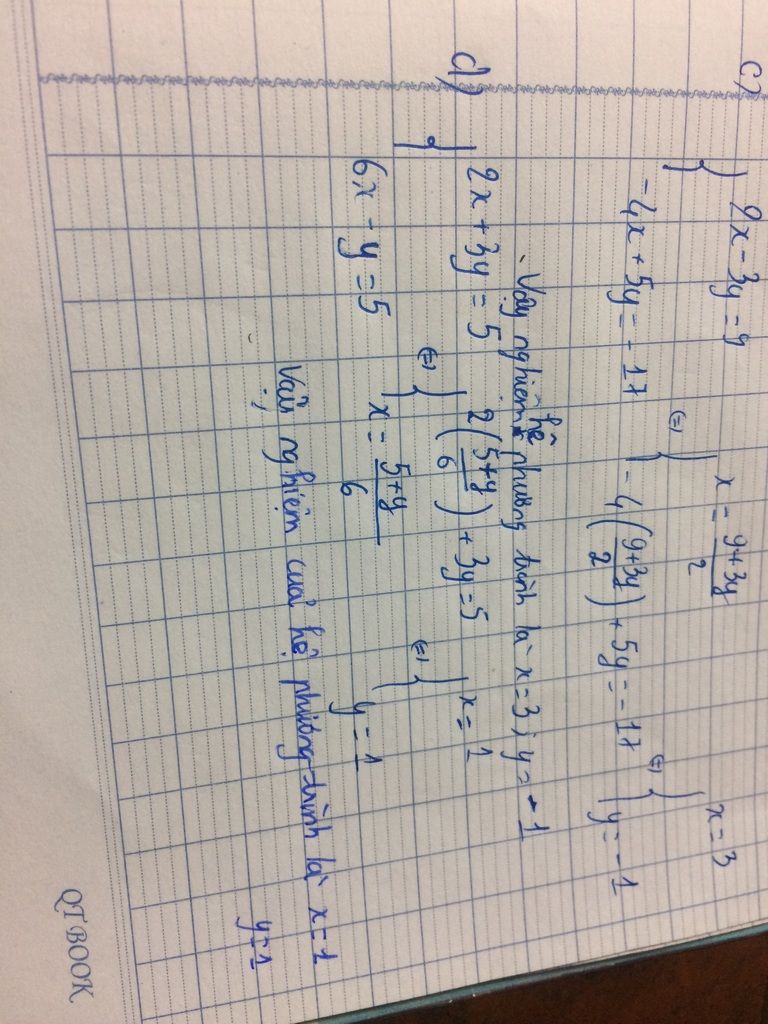 c) { 2x - 3y = 9 (=) { x = \frac{9+3y}{2} (=) { x = 3
-4x + 5y = -17 -4(\frac{9+3y}{2}) + 5y = -17 y = -1
Vậy nghiệm hệ phương trình là x=3; y = -1
d) { 2x + 3y = 5 (=) { 2(\frac{5+y}{6}) + 3y = 5 (=) { x = 1
6x - y = 5 x = \frac{5+y}{6} y = 1
Vậy nghiệm của hệ phương trình là x=1
y=1
QT BOOK